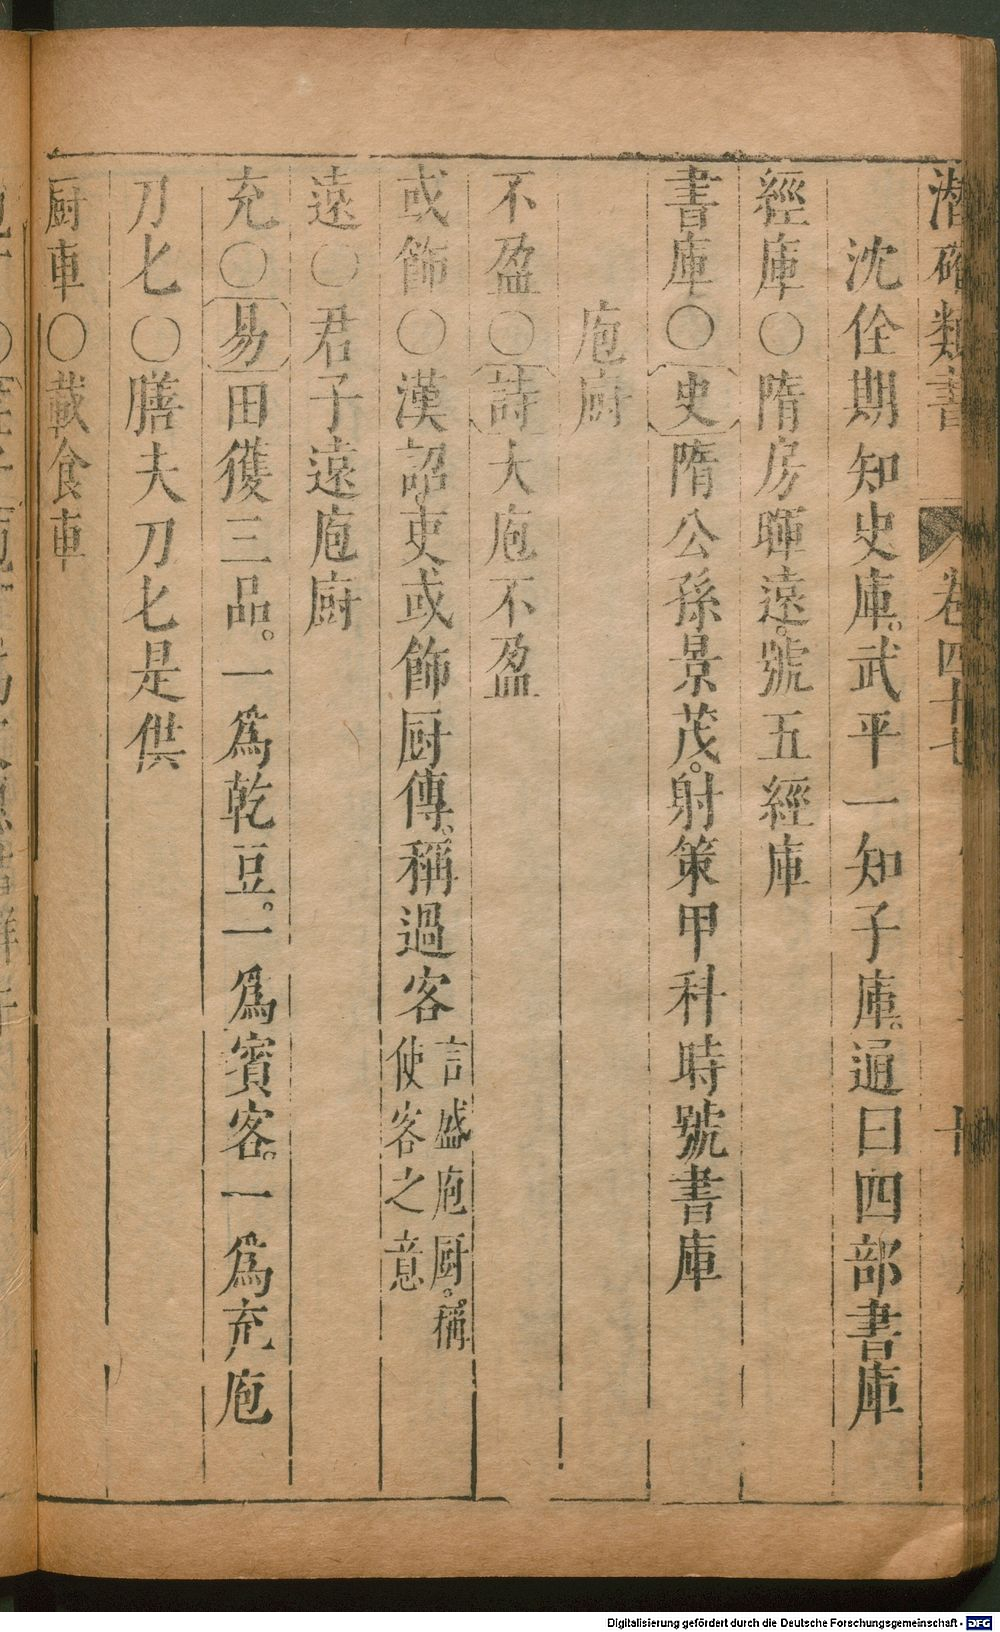 潛確類書 卷四十七
沈佺期知史庫。武平一知子庫。通曰四部書庫
經庫○隋房暉遠。號五經庫
書庫○史隋公孫景茂。射策甲科時號書庫
庖廚
不盈○詩大庖不盈
或飾○漢詔吏或飾厨傳。稱過客言盛庖厨。稱使客之意
遠○君子遠庖厨
充○易田獲三品。一爲乾豆。一爲賓客。一爲充庖
刀匕○膳夫刀匕是供
厨車○載食車
Digitalisierung gefördert durch die Deutsche Forschungsgemeinschaft - DFG